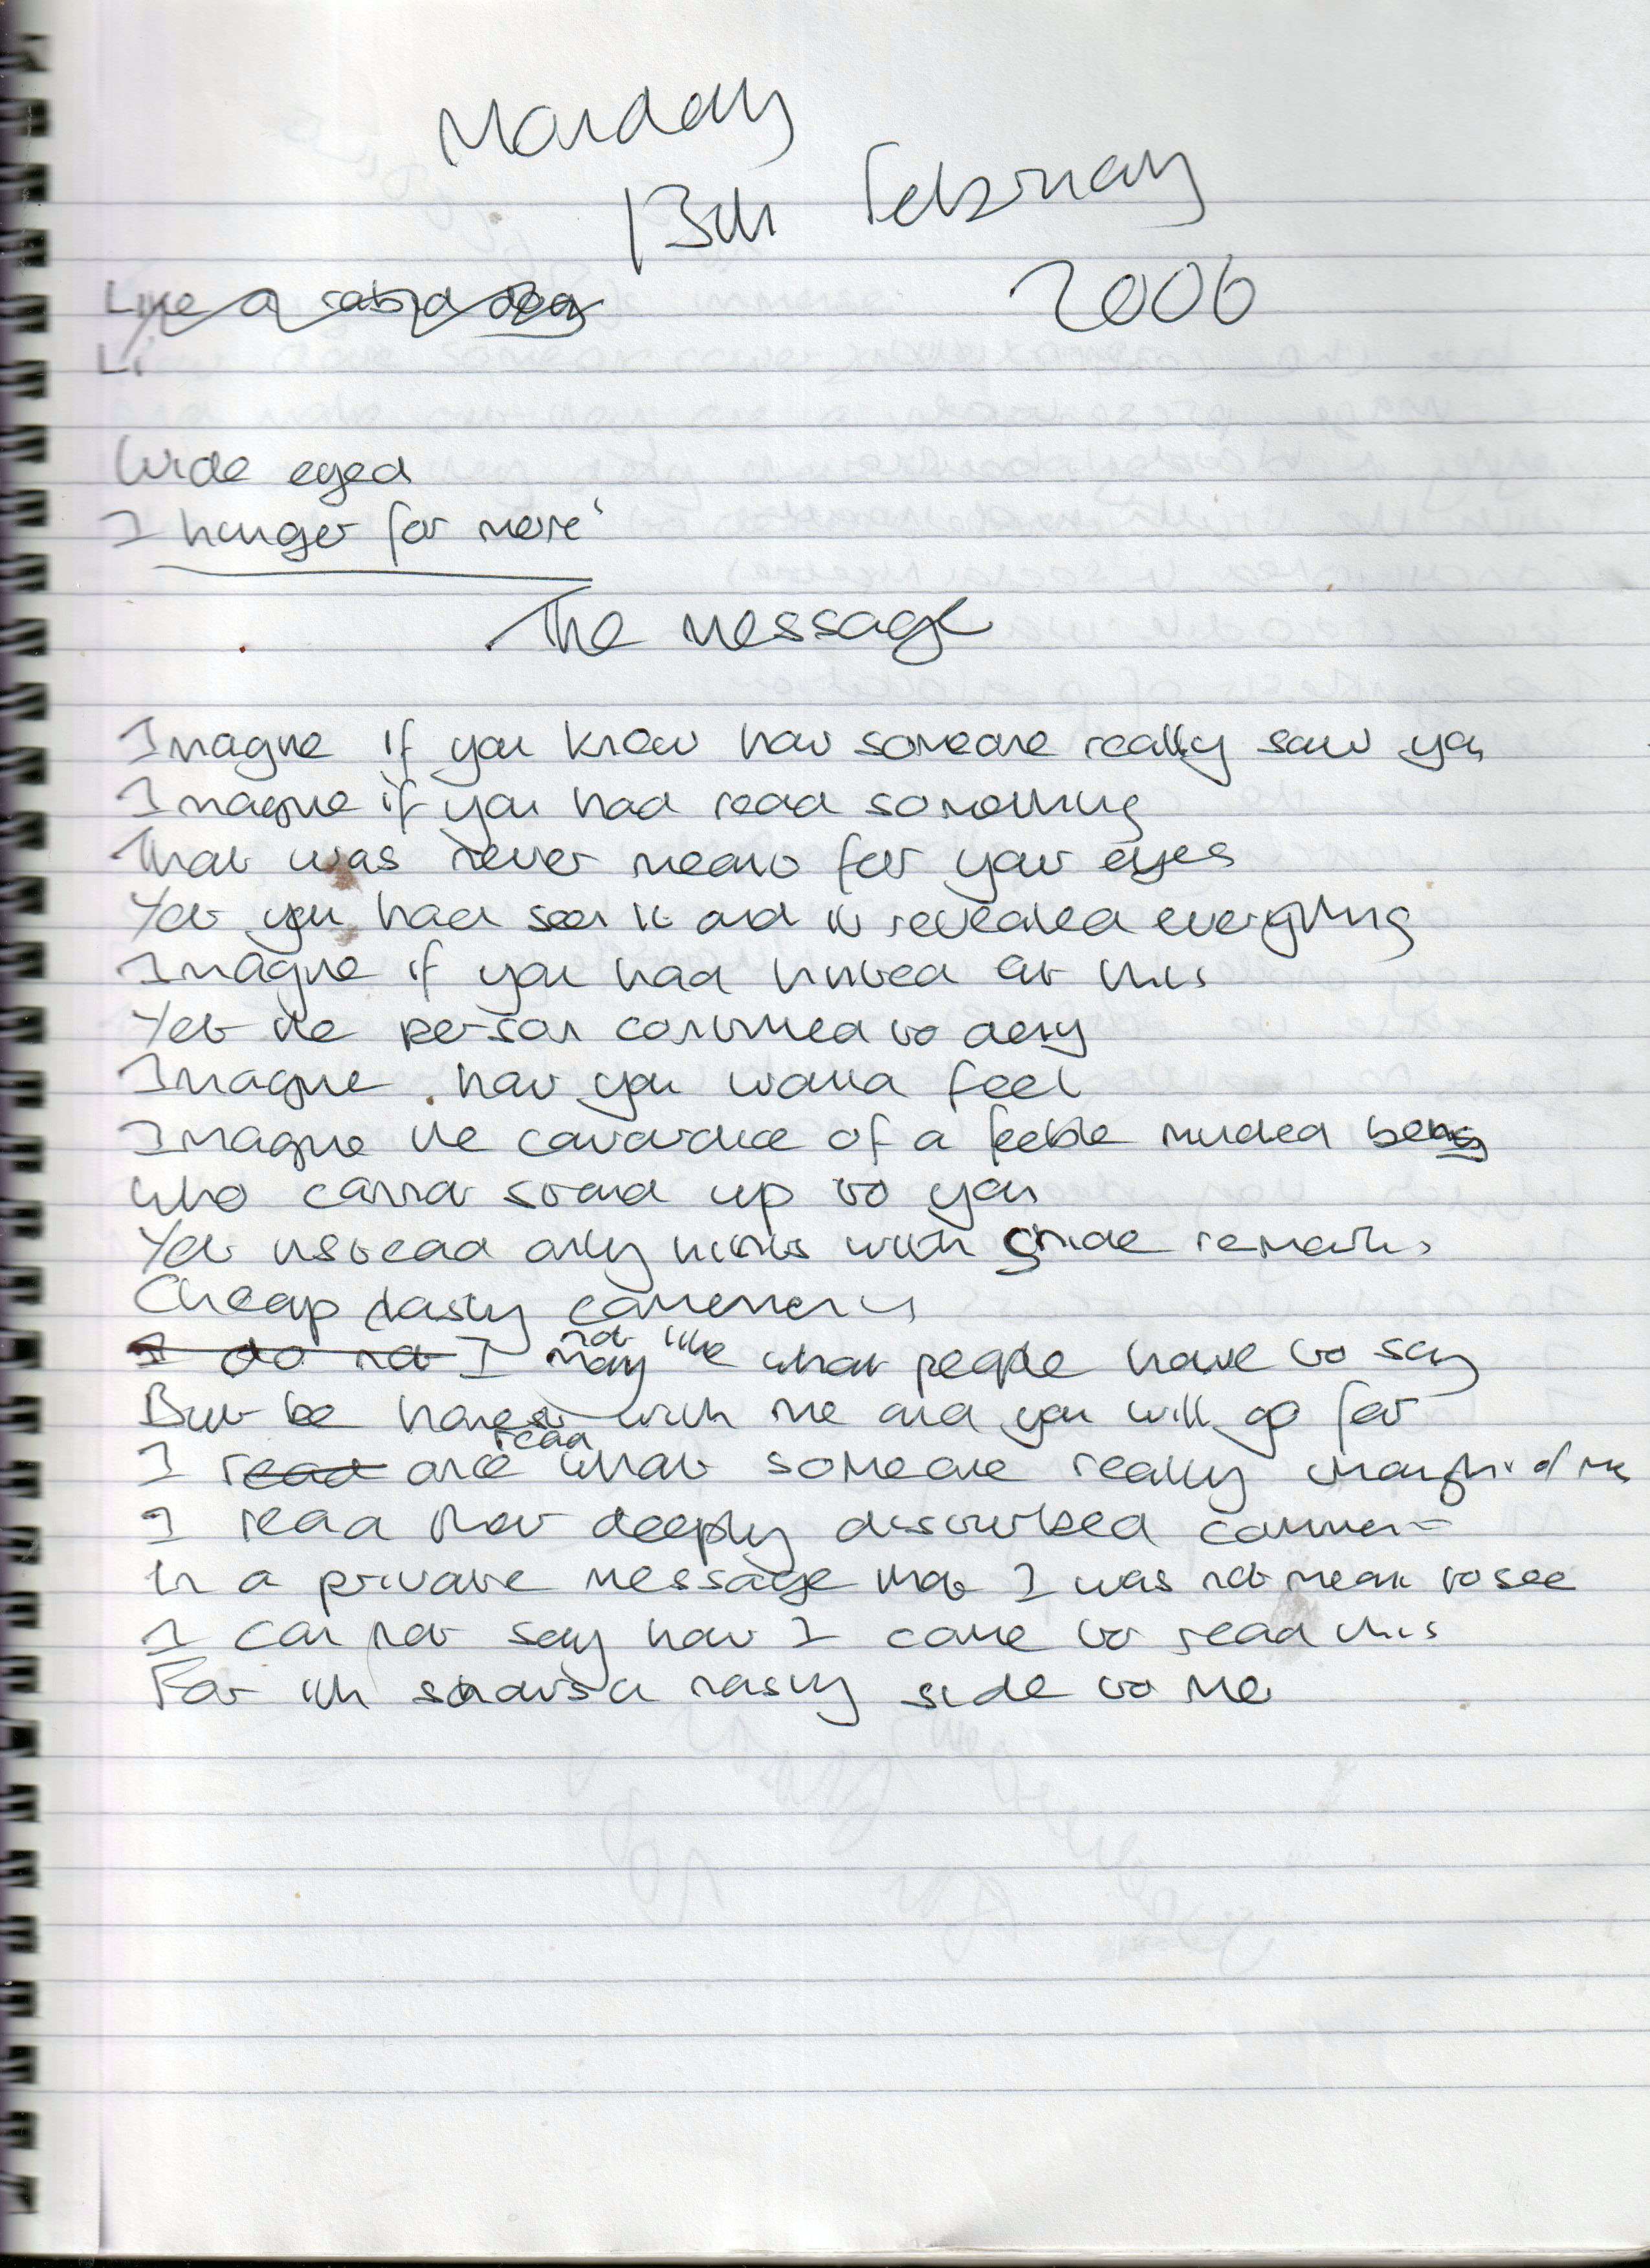 Monday
13th February
2006
Like a rabid dog
Li
Wide eyed
I hunger for more'
The Message
Imagine if you knew how someone really saw you
Imagine if you had read something
That was never meant for your eyes
Yet you had seen it and it revealed everything
Imagine if you had hinted at this
Yet the person continued to deny
Imagine how you would feel
Imagine the cowardice of a feeble minded being
who cannot stand up to you
Yet instead only hints with snide remarks
Cheap nasty comments
I do not I may not like what people have to say
But be honest with me and you will go far
I read once read what someone really thought of me
I read that deeply disturbed comment
In a private message that I was not meant to see
I can not say how I came to read this
For it shows a nasty side to me